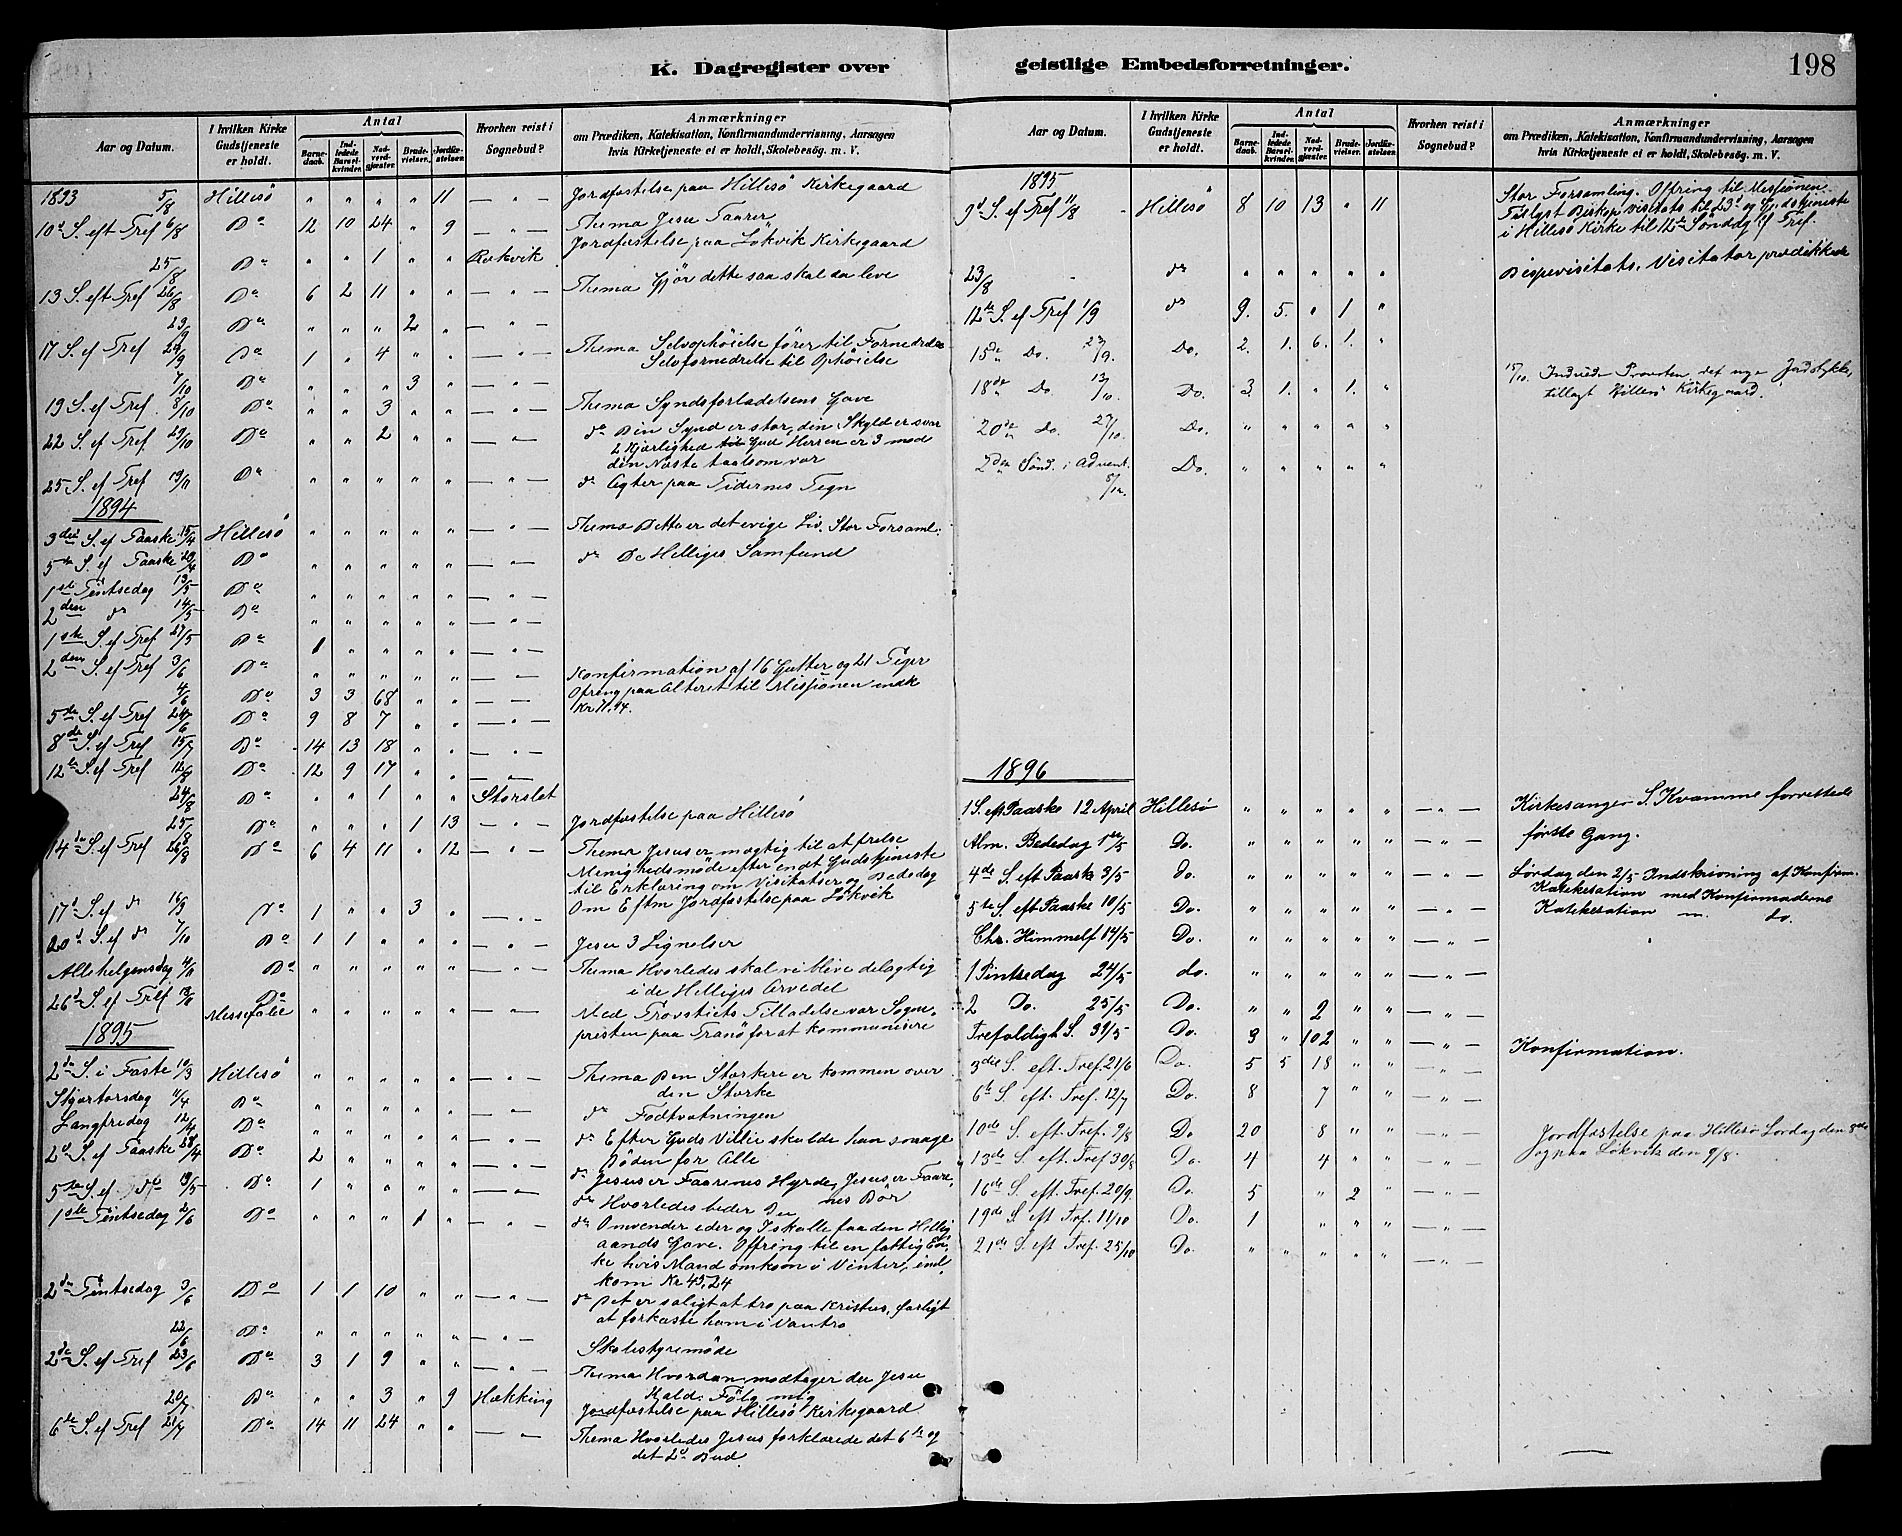 K. Dagregister over geistlige Embedsforretninger.
198
Aar og Datum.
I hvilken Kirke Gudstjeneste er holdt.
Antal
Barnedaab.
Indledede Barselkvinder.
Nadverdgjæster.
Brudevielser.
Jordfæstelser.
Hvorhen reist i Sognebud?
Anmærkninger
om Prædiken, Katekisation, Konfirmandundervisning, Aarsagen
hvis Kirketjeneste ei er holdt, Skolebesög. m. V.
1893 5/8 Hillesö " " " " 11 — " — Jordfæstelse paa Hillesö Kirkegaard
10d S. eft Tref 6/8 Do 12 10 24 " 9 — " — Thema Jesu Taarer
Jordfæstelse paa Lökvik Kirkegaard
25/8 Do " " 1 " " Rækvik
13 S. eft Tref 26/8 Do 6 2 11 " " — " — Thema Gjör dette saa skal du leve
23/9 Do " " " 2 " — " —
17 S. ef Tref 24/9 Do 1 " 4 " " — " — Thema Selvophöielse förer til Fornedrelse
Selvfornedrelse til Ophöielse
7/10 Do " " " 3 " — " —
19 S. ef Tref. 8/10 Do " " 3 " " — " — Thema Syndsforladelsens Gave
22 S. ef Tref. 29/10 Do " " 2 " " — " — do Din Synd er stor, den Skyld er svar
2 Kjærlighed til Gud Herren er 3 mod
den Næste taalsom var
25 S. ef Tref 19/11 Do " " " " " — " — do Agter paa Tidernes Tegn
1894
3die S. ef Paaske 15/4 Hillesö " " " " " — " — Thema Dette er det evige Liv. Stor Forsaml.
5te S. ef Paaske 29/4 Do " " " " " — " — do De Helliges Samfund
1ste Pintsedag 13/5 Do " " " " " — " —
2den do 14/5 Do " " " " " — " —
1ste S. ef Tref 27/5 Do 1 " " " " — " —
2den S. ef Tref 3/6 Do " " " " " — " — Konfirmation af 16 Gutter og 21 Piger
4/6 Do 3 3 68 " " — " — Ofring paa Alteret til Missionen indk
5de S. ef Tref 24/6 Do 9 8 7 " " — " — Kr 11.14.
8de S. ef Tref 15/7 Do 14 13 18 " " — " —
12te S. ef Tref 12/8 Do 12 9 17 " " — " —
24/8 Do " " 1 " " Storslet
25/8 Do " " " 1 13 — " — Jordfæstelse paa Hillesö
14de S. ef Tref 26/8 Do 6 4 11 " 12 — " — Thema Jesus er mægtig til at frelse
Menighedsmöde efter endt Gudstjeneste
til Erklæring om Visitatser og Bededag
17d S. ef do 16/9 Do 1 " " 3 " — " — Om Eftm Jordfæstelse paa Lökvik
20d S. ef do 7/10 Do 1 1 " " " — " — Jesu 3 Lignelser
Allehelgensdag 4/11 Do " " " " " — " — Thema Hvorledes skal vi blive delagtig
i de Helliges Arvedel
26d S. ef Tref 18/11 Do
Messefald " " " " " — " — Med Provstiets Tilladelse var Sogne-
1895
presten paa Tranö for at kommunisere
2de S. i Faste 10/3 Hillesö " " " " " — " — Thema Den Stærkere er kommen over
den Stærke
Skjærtorsdag 11/4 Do " " " " " — " — do Fodtvætningen
Langfredag 12/4 Do " " " " " — " — do Efter Guds Villie skulde han smage
Döden for Alle
2d S. ef Paaske 28/4 Do 2 " " " " — " — do Jesus er Faarenes Hyrde, Jesus er Faare,
nes Dör
5te S. ef do 19/5 Do 1 " " " " — " — do Hvorledes beder Du
1ste Pintsedag 2/6 Do " " " 1 " — " — do Omvender eder og I skulle faa den Hellig
aands Gave. Offring til en fattig En-
ke hvis Mand omkom i Vinter, ind
kom Kr 45,24
2den Pintsedag 3/6 Do 1 1 10 " " — " — do Det er saligt at tro paa Kristus, farligt
at forkaste ham i Vantro
22/6 Do " " " " " — " — Skolestyremöde
2de S. ef Tref 23/6 Do 3 1 9 " " — " — Thema Hvordan modtager du Jesu
Kald: Fölg mig
20/7 Do " " 3 " 9 Hækking Jordfæstelse paa Hillesö Kirkegaard
6te S. ef Tref 21/7 Do 14 11 24 " " — " — Thema Hvorledes Jesus forklarede det 6te og
det 2d Bud
Aar og Datum.
I hvilken Kirke Gudstjeneste er holdt.
Antal
Barnedaab.
Indledede Barselkvinder.
Nadverdgjæster.
Brudevielser.
Jordfæstelser.
Hvorhen reist i Sognebud?
Anmærkninger
om Prædiken, Katekisation, Konfirmandundervisning, Aarsagen
hvis Kirketjeneste ei er holdt, Skolebesög. m. V.
1895
9d S. ef Tref 11/8 Hillesö 8 10 13 " 11 Stor Forsamling. Ofring til Missionen.
Tillyst Biskop visitats til 23d og Gudstjeneste
i Hillesö Kirke til 12te Söndag ef Tref.
23/8 do " " " " " Bispevisitats, Visitator prædikkede
12te S. ef Tref 1/9 do 9. 5. " 1 "
15de Do. 22/9. Do. 2. 1. 6. 1. "
18de Do 13/10. Do. 3. 1. " 1. " 15/10. Indviede Provsten det nye Jordstykke,
tillagt Hillesö Kirkegaard.
20de Do. 27/10. Do. " " " " "
2den Sönd. i Advent. 8/12. Do. " " " " "
1896
1 S. eft Paaske 12 April Hillesö " " " " " — " — Kirkesanger S. Kvamme forrettede
förste Gang.
Alm. Bededag 1ste/5 Do. " " " " " — " —
4de S. eft Paaske 3/5 do. " " " " " — " — Lørdag den 2/5 Indskrivning af Konfirm.
Katekesation med Konfirmanderne
5te S. eft Paaske 10/5 Do. " " " " " — " — Katekesation m. do.
Chr. Himmelf 14/5 Do. " " " " " — " —
1 Pintsedag 24/5 do. " " " " " — " —
2 Do. 25/5 Do. " " 2 " " — " —
Trefoldigh S. 31/5 Do. 9 " 102 " " — " — Konfirmation.
3die S. eft. Tref. 21/6 Do. 5 5 18 " " — " —
6te S. eft. Tref. 12/7 Do. 8 7 " " — " —
10de S. eft. Tref. 9/8 Do 20 8 " " — " — Jordfæstelse paa Hillesö Lørdag den 8de
og paa Lökvik den 9/8.
13de S. eft. Tref 30/8 Do. 4 4 " " — " —
16de S. eft. Tref. 20/9. Do. 5 " 2 " — " —
19de S. eft Trf. 11/10 Do. 1 " " " — " —
21de S. eft Tref. 25/10 Do. " " " " " — " —